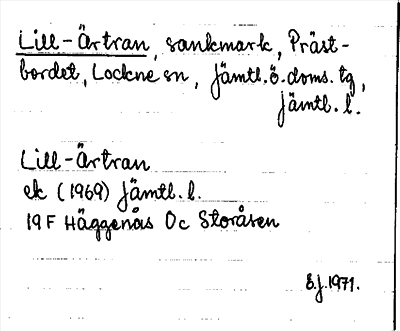 Lill-Ärtran, sankmark, Präst-
bordet, Lockne sn, Jämtl.ö.doms. tg,
Jämtl. l.
Lill-Ärtran
ek (1969) Jämtl. l.
19 F Häggenås Oc Storåsen
S.J. 1971.